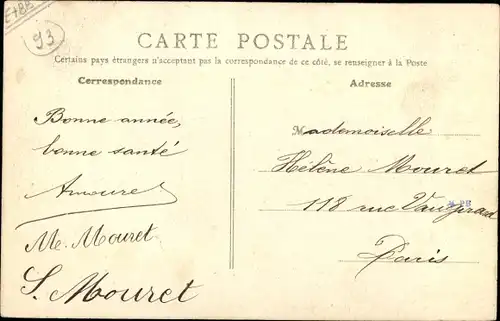 E+BK
93
CARTE POSTALE
Certains pays étrangers n'acceptant pas la correspondance de ce côté, se renseigner à la Poste
Correspondance
Adresse
Bonne année,
bonne santé
Amouret
Me. Mouret
S. Mouret
Mademoiselle
Hélène Mouret
118 rue Vaugirard
Paris